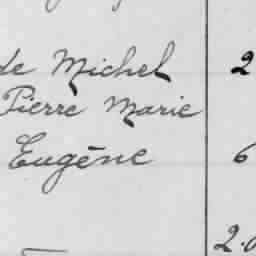 de Michel 2
Pierre Marie
Eugène 6
2.0